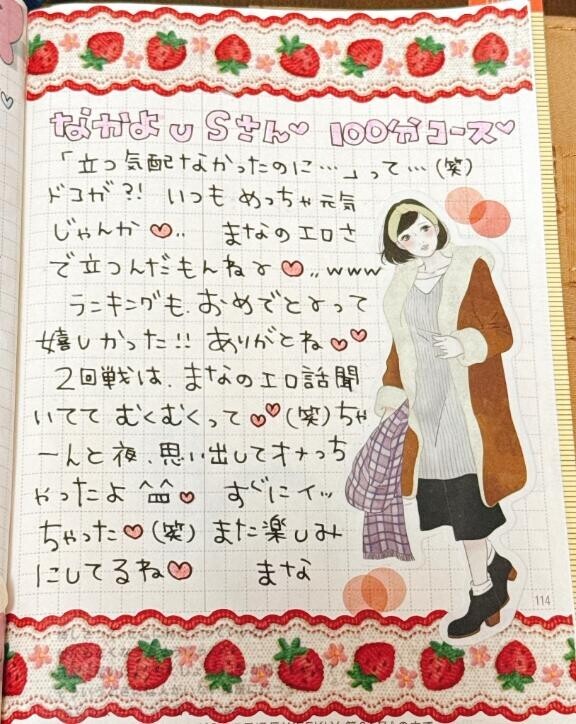 なかよUSさん♡ 100分コース♡
「立つ気配なかったのに…」って…(笑)
ドコが?! いつも めっちゃ元気
じゃんか♡‥ まなのエロさ
で立つんだもんねょ♡‥www
ランキングも、おめでとょって
嬉しかった!! ありがとね♡♡
2回戦は、まなのエロ話聞
いてて むくむくって♡♡(笑)ちゃ
ーんと夜、思い出してオナっち
ゃったよ^^♡ すぐにイッ
ちゃった♡(笑) また楽しみ
にしてるね♡ まな
114